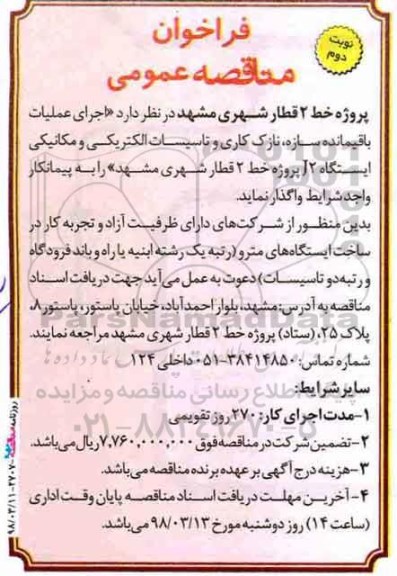 فراخوان
مناقصه عمومی
نوبت
دوم
پروژه خط ۲ قطار شهری مشهد در نظر دارد «اجرای عملیات
باقیمانده سازه، نازک کاری و تاسیسات الکتریکی و مکانیکی
ایستگاه J2 پروژه خط ۲ قطار شهری مشهد» را به پیمانکار
واجد شرایط واگذار نماید.
بدین منظور از شرکت‌های دارای ظرفیت آزاد و تجربه کار در
ساخت ایستگاه‌های مترو (رتبه یک رشته ابنیه یا راه و باند فرودگاه
و رتبه دو تاسیسات) دعوت به عمل می‌آید جهت دریافت اسناد
مناقصه به آدرس: مشهد، بلوار احمدآباد، خیابان پاستور، پاستور ۸،
پلاک ۲۵، (ستاد) پروژه خط ۲ قطار شهری مشهد مراجعه نمایند.
شماره تماس: ۳۸۴۱۴۸۵۰-۰۵۱ داخلی ۱۲۴
سایر شرایط:
۱- مدت اجرای کار: ۲۷۰ روز تقویمی
۲- تضمین شرکت در مناقصه فوق ۷,۷۶۰,۰۰۰,۰۰۰ ریال می‌باشد.
۳- هزینه درج آگهی بر عهده برنده مناقصه می‌باشد.
۴- آخرین مهلت دریافت اسناد مناقصه پایان وقت اداری
(ساعت ۱۴) روز دوشنبه مورخ ۹۸/۰۳/۱۳ می‌باشد.
ParsNamadData
پایگاه اطلاع رسانی مناقصه و مزایده